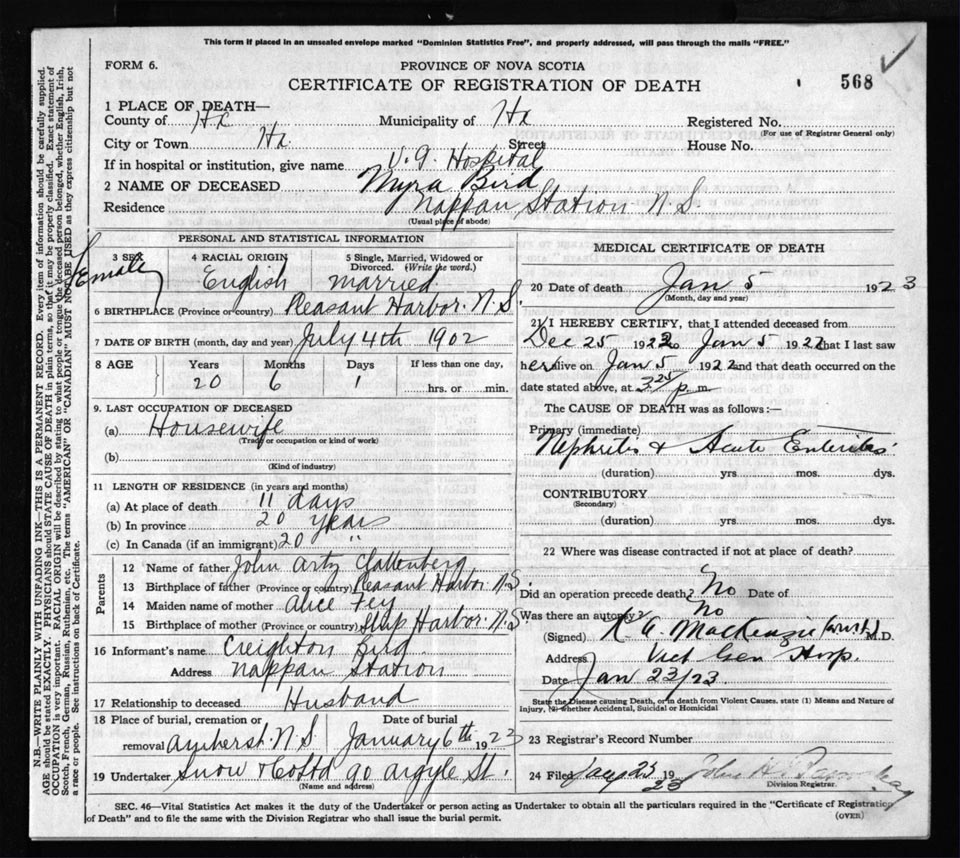 This form if placed in an unsealed envelope marked "Dominion Statistics Free", and properly addressed, will pass through the mails "FREE."
FORM 6.
PROVINCE OF NOVA SCOTIA
CERTIFICATE OF REGISTRATION OF DEATH
568
1 PLACE OF DEATH—
County of Hx Municipality of Hx Registered No.
(For use of Registrar General only)
City or Town Hx. Street House No.
If in hospital or institution, give name V.G. Hospital
2 NAME OF DECEASED Myra Bird
Residence Nappan Station N.S
(Usual place of abode)
N.B.—WRITE PLAINLY WITH UNFADING INK—THIS IS A PERMANENT RECORD. Every item of information should be carefully supplied.
AGE should be stated EXACTLY. PHYSICIANS should STATE CAUSE OF DEATH in plain terms, so that it may be properly classified. Exact statement of
OCCUPATION is very important. RACIAL ORIGIN will be described by stating to what people or tongue the deceased person belonged, whether English, Irish,
Scotch, French, German, Russian, Ruthenian, etc. The terms "AMERICAN" OR "CANADIAN" MUST NOT BE USED as they express citizenship but not
a race or people. See instructions on back of Certificate.
PERSONAL AND STATISTICAL INFORMATION
3 SEX 4 RACIAL ORIGIN 5 Single, Married, Widowed or
Divorced. (Write the word.)
Female English married.
6 BIRTHPLACE (Province or country) Pleasant Harbor. N.S.
7 DATE OF BIRTH (month, day and year) July 4th 1902
8 AGE Years Months Days If less than one day,
20 6 1 hrs. or min.
9. LAST OCCUPATION OF DECEASED
(a) Housewife
(Trade or occupation or kind of work)
(b)
(Kind of industry)
11 LENGTH OF RESIDENCE (in years and months)
(a) At place of death 11 days
(b) In province 20 years
(c) In Canada (if an immigrant) 20 "
Parents
12 Name of father John Artz Clattenberg
13 Birthplace of father (Province or country) Pleasant Harbor N.S.
14 Maiden name of mother Alice Fey
15 Birthplace of mother (Province or country) Harbor. N.S.
16 Informant's name Creighton Bird
Address Nappan Station
17 Relationship to deceased Husband
18 Place of burial, cremation or Date of burial
removal Amherst. N.S. January 6th 1923
19 Undertaker Snow & Co Ltd 90 Argyle St.
(Name and address)
MEDICAL CERTIFICATE OF DEATH
20 Date of death Jan 5 1923
(Month, day and year)
21 I HEREBY CERTIFY, that I attended deceased from
Dec 25 1922 to Jan 5 1922 that I last saw
her alive on Jan 5 1922 and that death occurred on the
date stated above, at 3.25 p. m.
The CAUSE OF DEATH was as follows:—
Primary (immediate)
Nephritis & Acute Enteritis
(duration) yrs mos. dys.
CONTRIBUTORY
(Secondary)
(duration) yrs. mos. dys.
22 Where was disease contracted if not at place of death?
Did an operation precede death? No Date of
Was there an autopsy? No
(Signed) K. A. MacKenzie M.D.
Address Vict Gen Hosp.
Date Jan 23/23
State the Disease causing Death, or in death from Violent Causes, state (1) Means and Nature of
Injury, (2) whether Accidental, Suicidal or Homicidal
23 Registrar's Record Number
24 Filed Jan 23 1923 John
Division Registrar.
SEC. 46—Vital Statistics Act makes it the duty of the Undertaker or person acting as Undertaker to obtain all the particulars required in the "Certificate of Registration
of Death" and to file the same with the Division Registrar who shall issue the burial permit. (OVER)